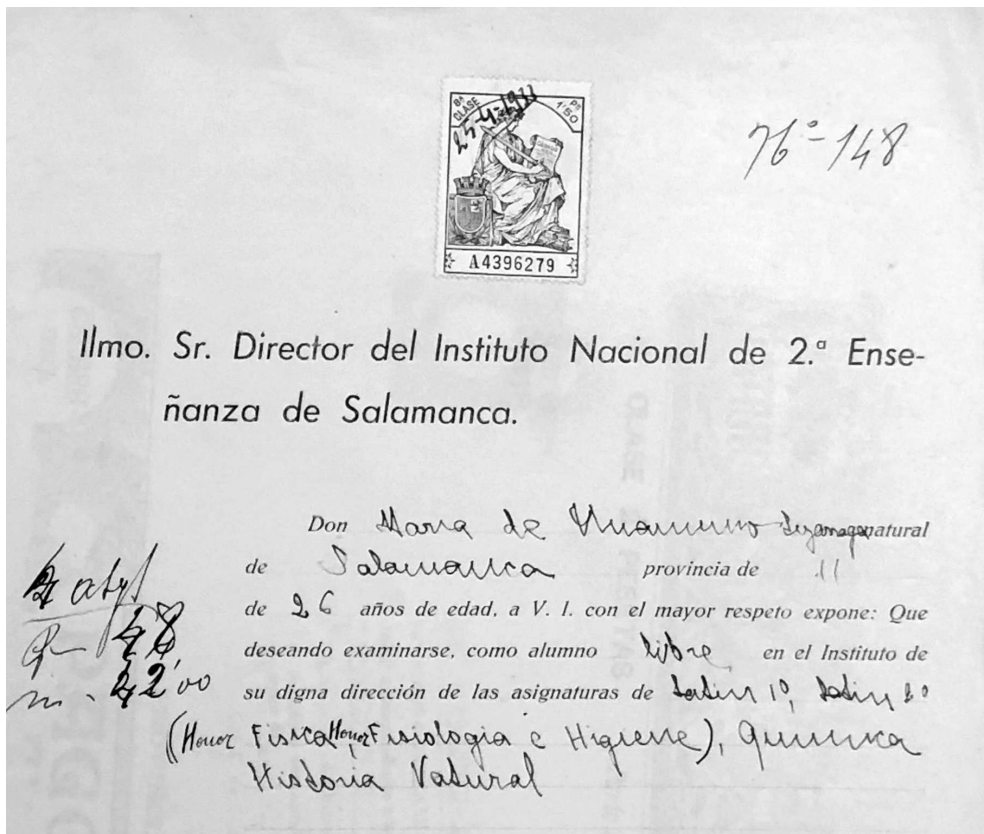 8ª CLASE Pts 1'50
25-4-1931
76º-148
A4396279
Ilmo. Sr. Director del Instituto Nacional de 2.ª Ense-
ñanza de Salamanca.
Don Maria de Unamuno Lizarraga natural
de Salamanca provincia de 11
de 26 años de edad, a V. I. con el mayor respeto expone: Que
deseando examinarse, como alumno libre en el Instituto de
su digna dirección de las asignaturas de Latin 1º, Latin 2º
(Honor Fisica Honor Fisiologia e Higiene), Quimica
Historia Natural
48,
m. 42,00